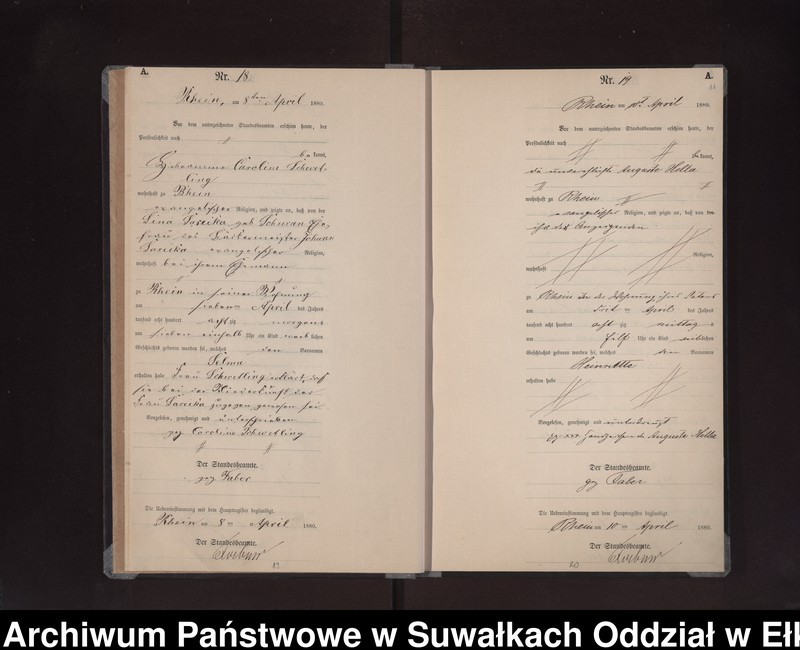 A.
Nr. 18
Rhein, am 8ten April 1880.
Vor dem unterzeichneten Standesbeamten erschien heute, der
Persönlichkeit nach
be kannt,
Hebeamme Caroline Schwel-
ling
wohnhaft zu Rhein
evangelischer Religion, und zeigte an, daß von der
Lina geb. Ehe-
frau des Johann
evangelischer Religion,
wohnhaft bei ihrem Ehemann
zu Rhein in seiner Wohnung
am sieben April des Jahres
tausend acht hundert acht zig morgens
um sieben einhalb Uhr ein Kind weib lichen
Geschlechts geboren worden sei, welches den Vornamen
Selma
erhalten habe Frau Schwelling erklärt, daß
sie bei der Niederkunft der
Frau zugegen gewesen sei
Vorgelesen, genehmigt und unterschrieben
gez Caroline Schwelling
Der Standesbeamte.
gez Faber
Die Uebereinstimmung mit dem Hauptregister beglaubigt.
Rhein am 8ten April 1880.
Der Standesbeamte.
Nr. 19
A.
Rhein am 10. April 1880.
Vor dem unterzeichneten Standesbeamten erschien heute, der
Persönlichkeit nach
be kannt,
die unverehelichte Auguste Hella
wohnhaft zu Rhein
evangelischer Religion, und zeigte an, daß von der
Religion,
wohnhaft
zu Rhein in der Wohnung ihres Vaters
am April des Jahres
tausend acht hundert acht zig mittag s
um Uhr ein Kind weiblichen
Geschlechts geboren worden sei, welches den Vornamen
Heinriette
erhalten habe
Vorgelesen, genehmigt und unterkreuzt
gez xxx Handzeichen der Auguste Hella
Der Standesbeamte.
gez Faber
Die Uebereinstimmung mit dem Hauptregister beglaubigt.
Rhein am 10ten April 1880.
Der Standesbeamte.
20
Archiwum Państwowe w Suwałkach Oddział w Ełk